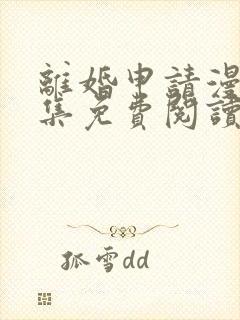 離婚申請漫
集免費閱讀
孤雪dd